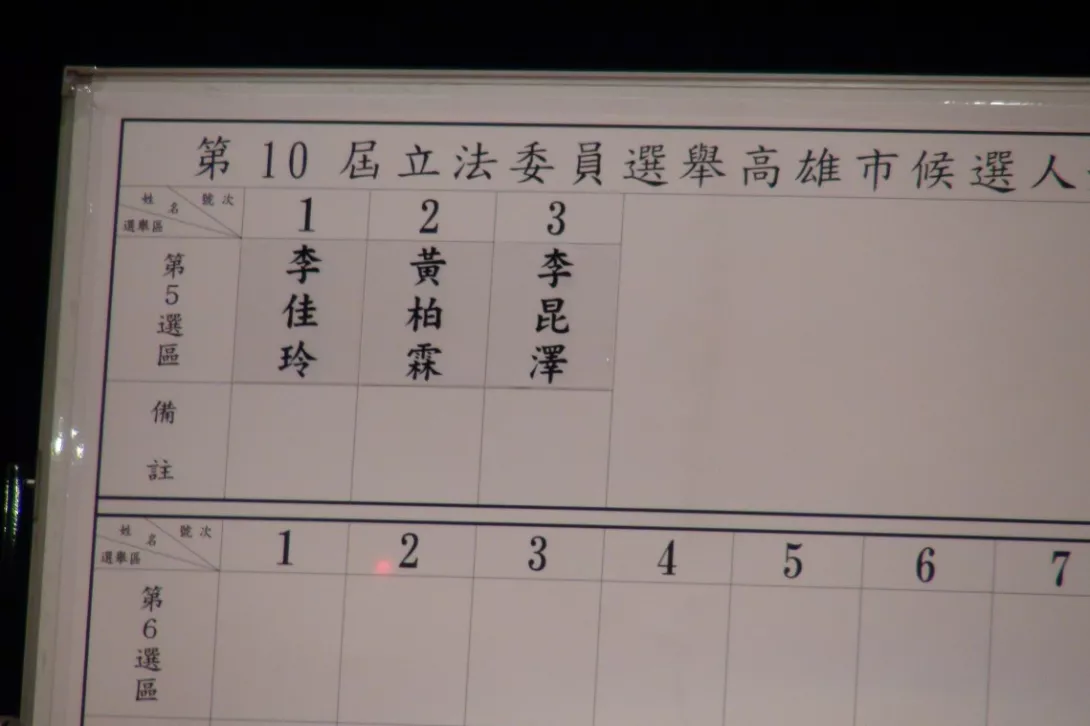 第 10 屆立法委員選舉高雄市候選人
姓名 號次 選舉區
1 2 3
第5選區
李佳玲
黃柏霖
李昆澤
備註
姓名 號次 選舉區
1 2 3 4 5 6 7
第6選區